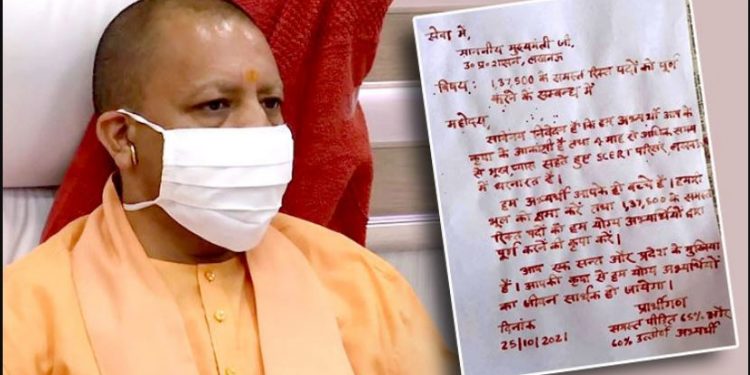 सेवा में,
माननीय मुख्यमंत्री जी,
उ०प्र०शासन, लखनऊ
विषय: 1,37,500 के समस्त रिक्त पदों को पूर्ण
करने के सम्बन्ध में
महोदय,
सविनय निवेदन है कि हम अभ्यर्थी आप के
कृपा के आकांक्षी है तथा 4 माह से अधिक समय
से भूख, प्यास सहते हुए SCERT परिसर, लखनऊ
में धरनारत है।
हम अभ्यर्थी आपके ही बच्चे है। हमारी
भूल को क्षमा करें तथा 1,37,500 के समस्त
रिक्त पदों को हम योग्य अभ्यर्थियों द्वारा
पूर्ण करने की कृपा करें।
आप एक सन्त और प्रदेश के मुखिया
हैं। आपकी कृपा से हम योग्य अभ्यर्थियों
का जीवन सार्थक हो जायेगा।
प्रार्थीगण
दिनांक समस्त पीड़ित 65% और
25/10/2021 60% उत्तीर्ण अभ्यर्थी